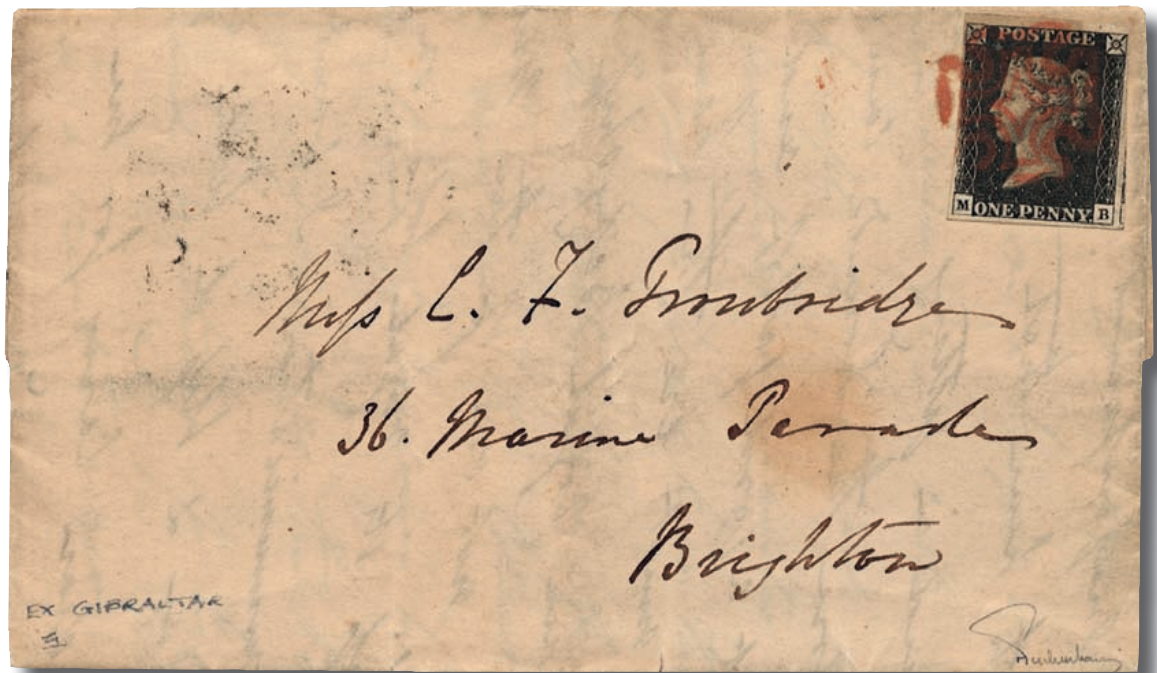 POSTAGE
M ONE PENNY. B
Miss C. F. Troubridge
36. Marine Parade
Brighton
EX GIBRALTAR